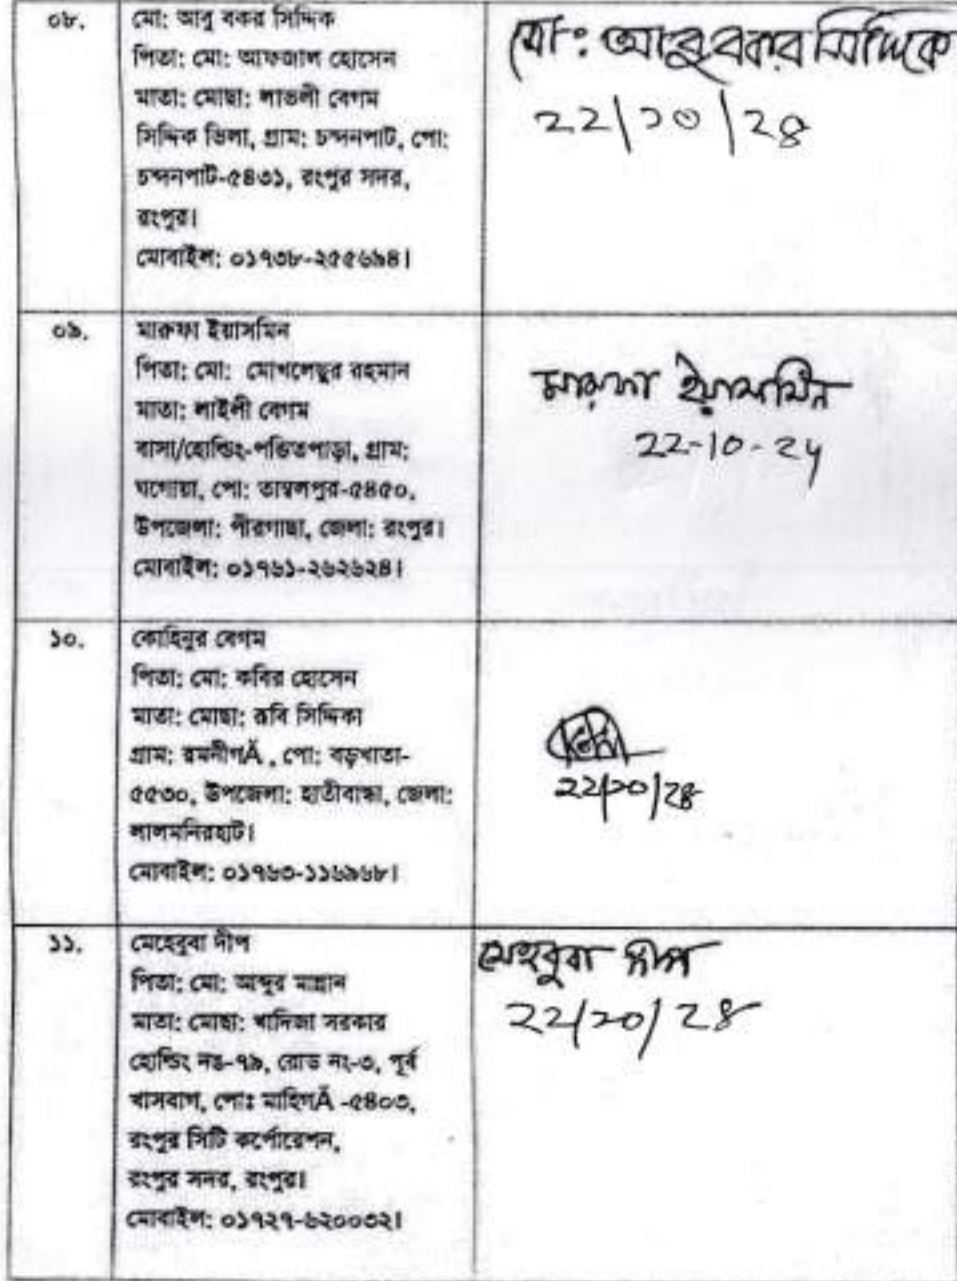 ০৮.
মো: আবু বকর সিদ্দিক
পিতা: মো: আফজাল হোসেন
মাতা: মোছা: লাভলী বেগম
সিদ্দিক ভিলা, গ্রাম: চন্দনপাট, পো:
চন্দনপাট-৫৪৩১, রংপুর সদর,
রংপুর।
মোবাইল: ০১৭৩৮-২৫৫৬৯৪।
মো: আবু বকর সিদ্দিক
২২/১০/২৪
০৯.
মারুফা ইয়াসমিন
পিতা: মো: মোখলেছুর রহমান
মাতা: লাইলী বেগম
বাসা/হোল্ডিং-পন্ডিতপাড়া, গ্রাম:
ঘগোয়া, পো: তাম্বলপুর-৫৪৫০,
উপজেলা: পীরগাছা, জেলা: রংপুর।
মোবাইল: ০১৭৬১-২৬২৬২৪।
মারুফা ইয়াসমিন
22-10-24
১০.
কোহিনুর বেগম
পিতা: মো: কবির হোসেন
মাতা: মোছা: রুবি সিদ্দিকা
গ্রাম: রমনীগÄ , পো: বড়খাতা-
৫৫৩০, উপজেলা: হাতীবান্ধা, জেলা:
লালমনিরহাট।
মোবাইল: ০১৭৬৩-১১৬৯৬৮।
২২/১০/২৪
১১.
মেহেবুবা দীপ
পিতা: মো: আব্দুর মান্নান
মাতা: মোছা: খাদিজা সরকার
হোল্ডিং নঙ-৭৯, রোড নং-৩, পূর্ব
খাসবাগ, পোঃ মাহিগÄ -৫৪০৩,
রংপুর সিটি কর্পোরেশন,
রংপুর সদর, রংপুর।
মোবাইল: ০১৭২৭-৬২০০৩২।
মেহবুবা দীপ
২২/১০/২৪